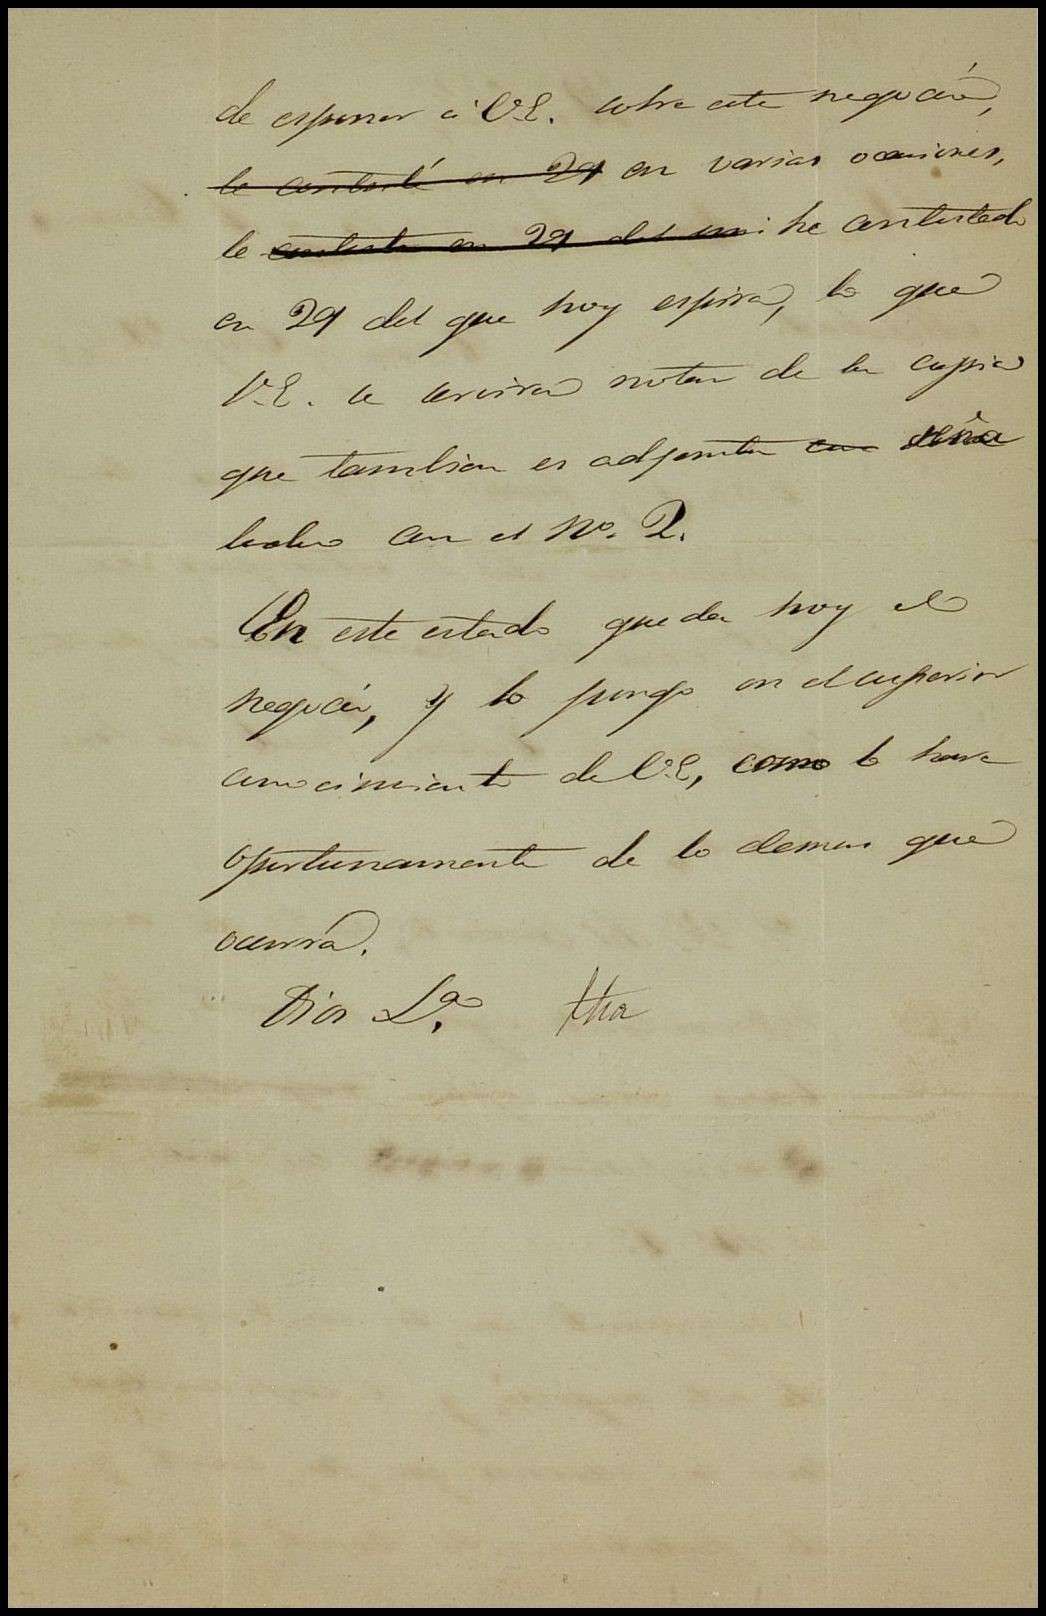 de esponer á V.E. sobre este negocio,
le contesté en 29 en varias ocasiones,
le contesté en 29 del mi he contestado
en 29 del que hoy espira, lo que
V.E. se servirá notar de la copia
que tambien es adjunta con seña
lada con el No. 2.
En este estado queda hoy el
negocio, y lo pongo en el superior
conocimiento de V.E, como lo haré
oportunamente de lo demas que
ocurra.
Dios La.